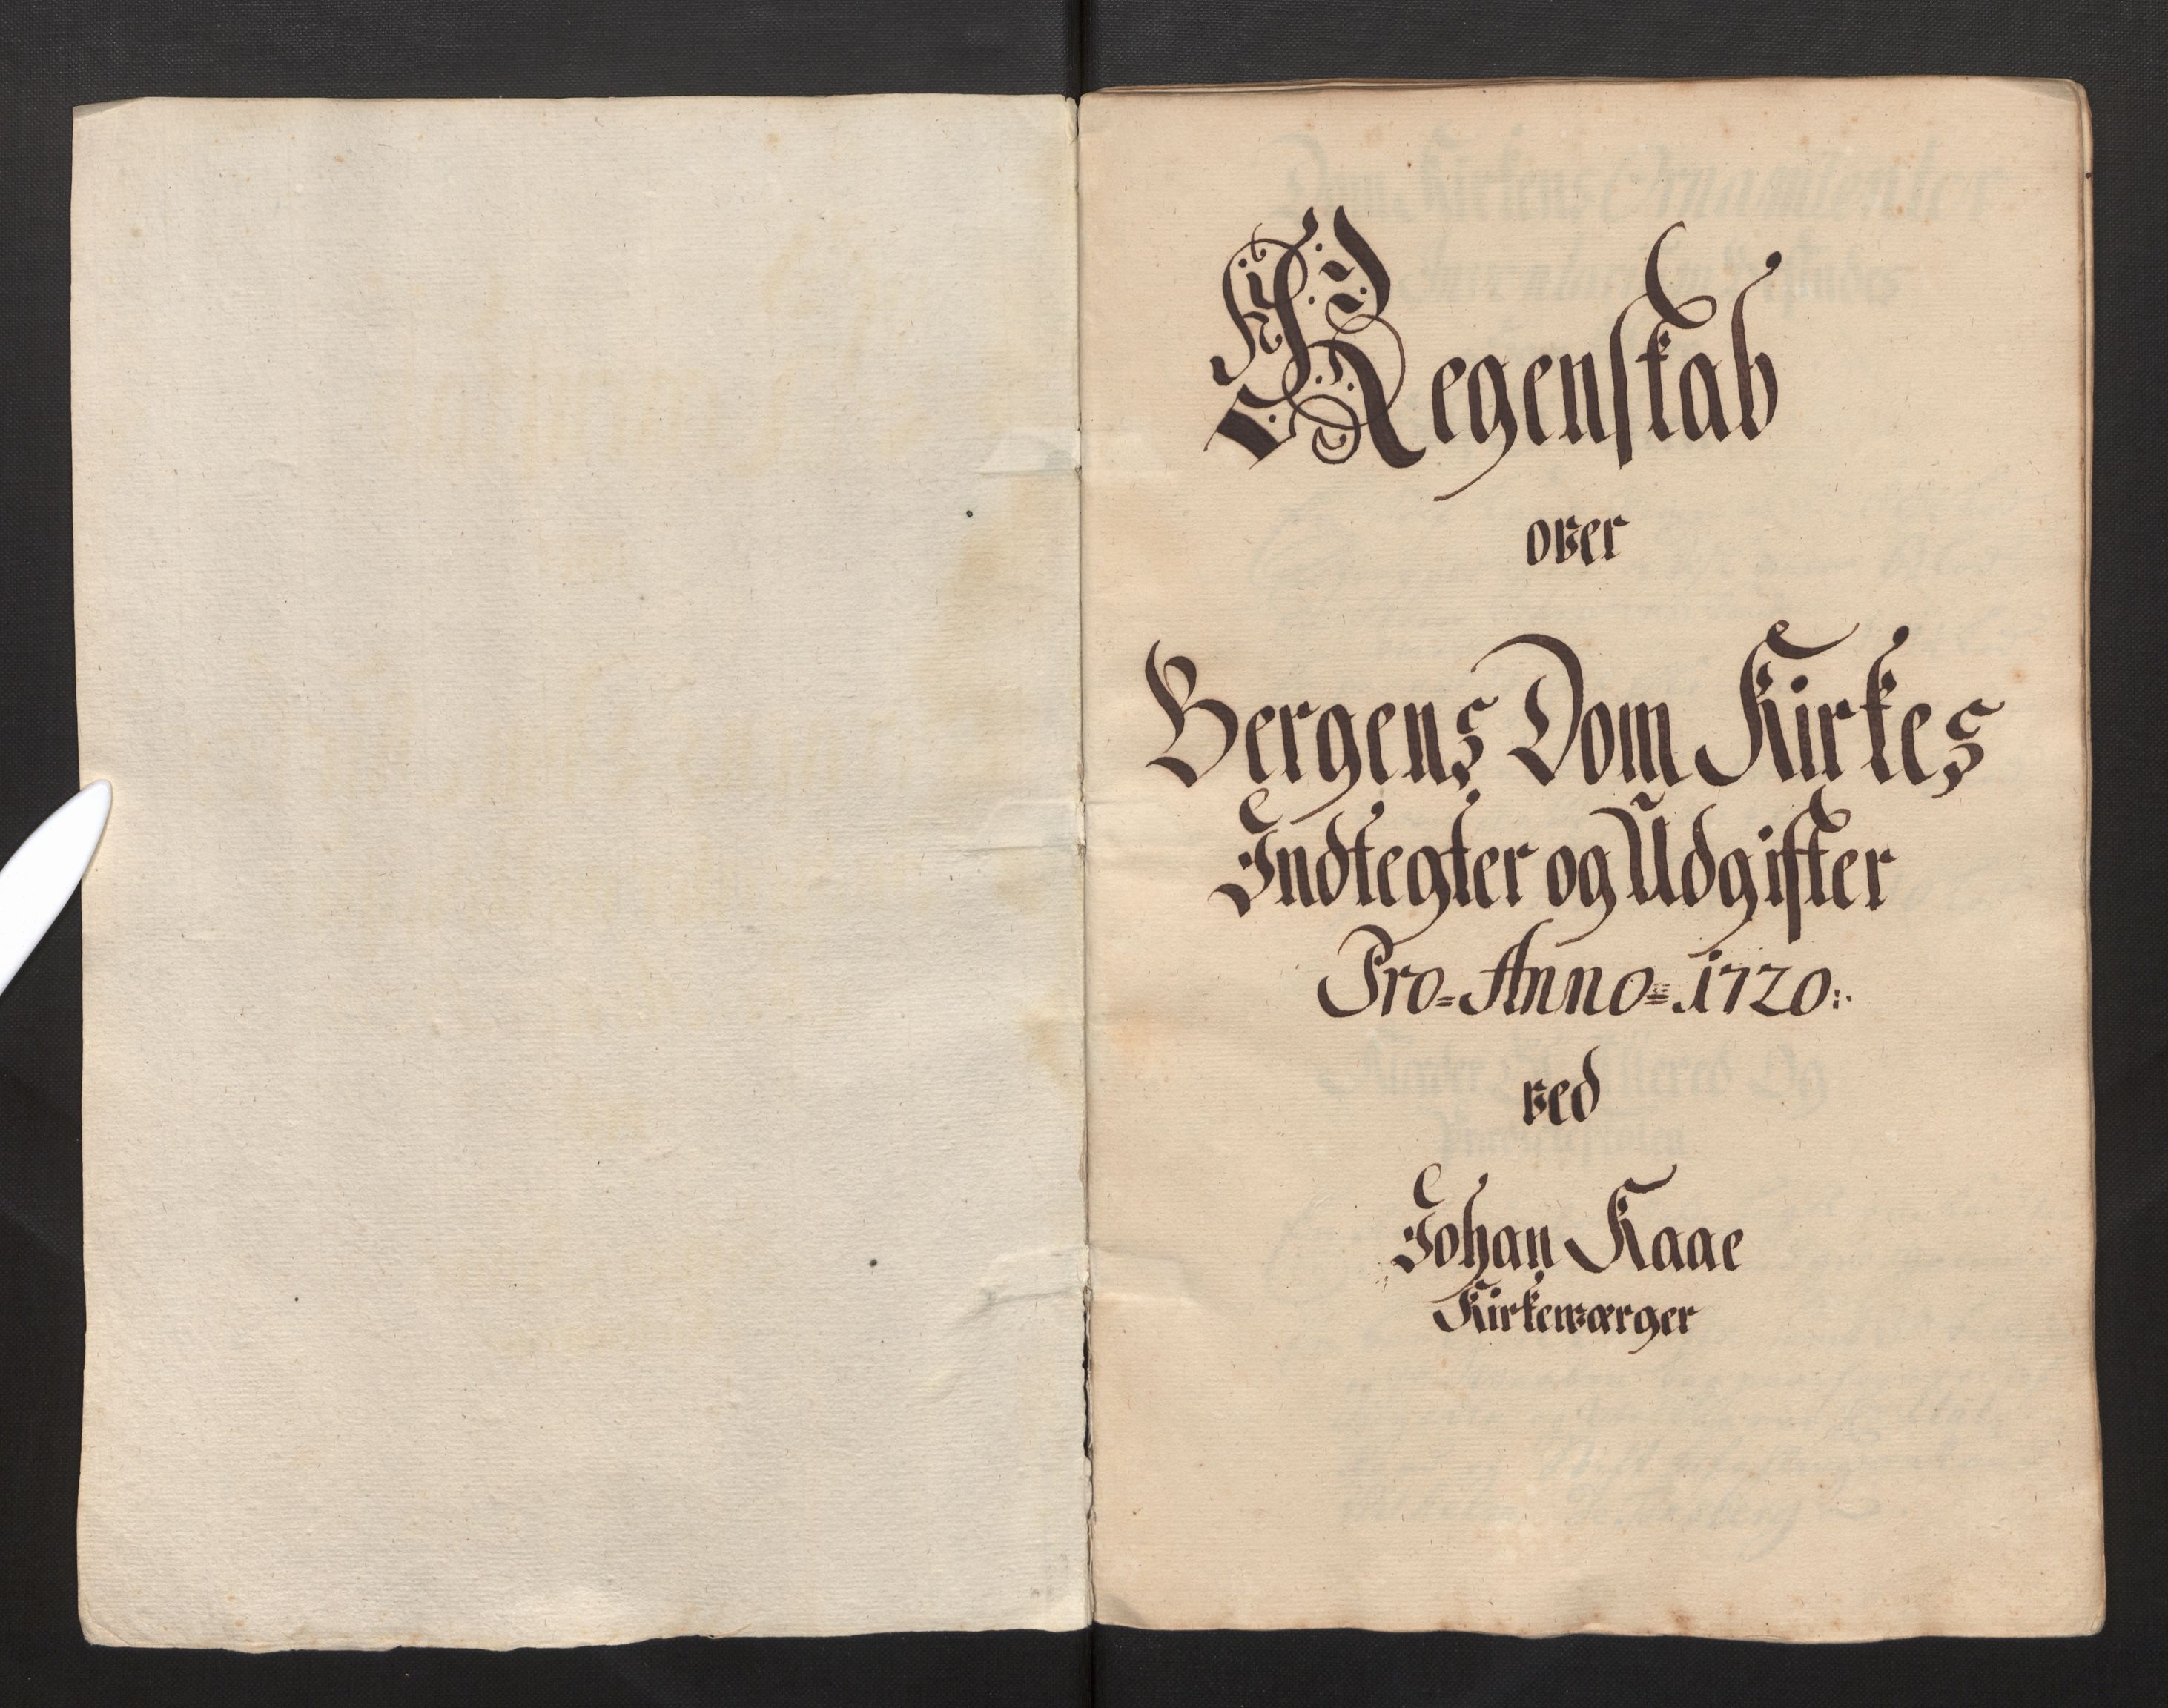 Regenskab
over
Bergens Dom Kirkes
Indtegter og Udgifter
Pro=Anno=1720:
ved
Johan Kaae
Kirkeværger